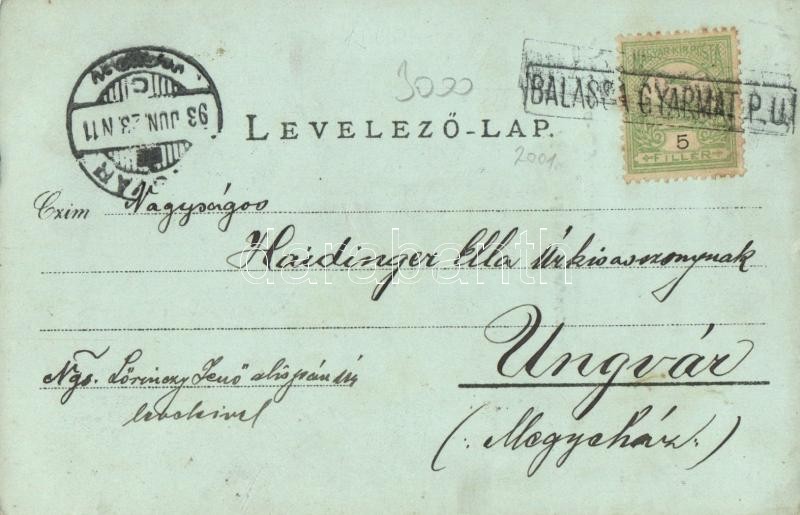 MAGYAR KIR. POSTA
BALASSA GYARMAT P. U.
5
FILLÉR
UNGVÁR
C
93 JUN. 23. N 11
UNGVÁR
3000
LEVELEZŐ-LAP.
2001.
Czim Nagyságos
Haidinger Ella Úrkisasszonynak
Ungvár
(: Megyeház :)
Ngs. Lőrinczy Jenő alispán úr
darabanth